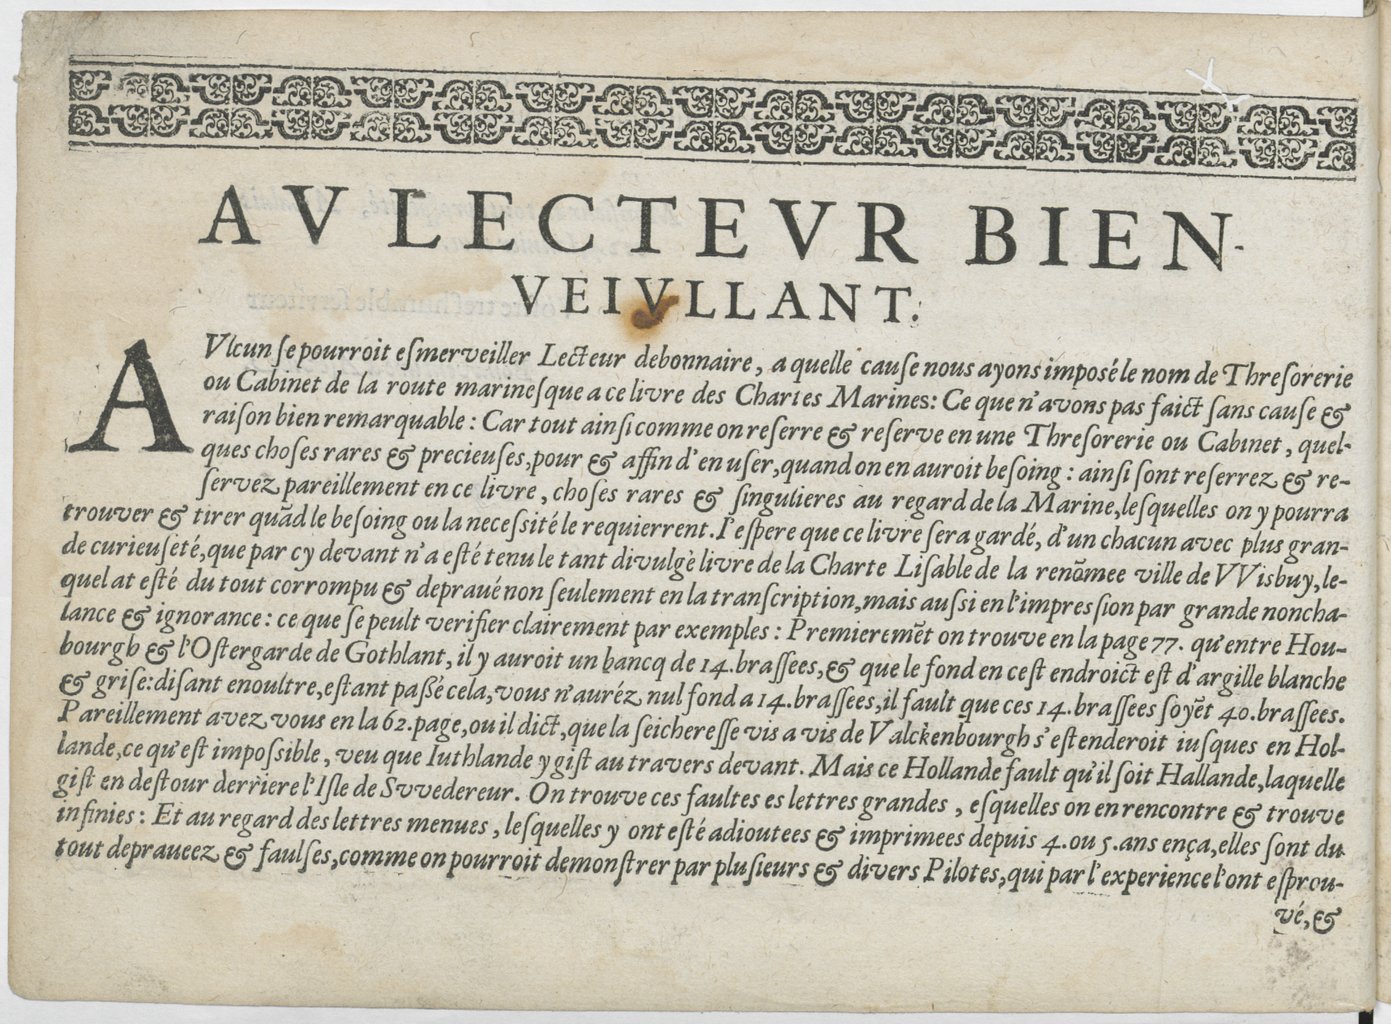 AV LECTEVR BIEN-
VEIVLLANT.
AVlcun se pourroit esmerveiller Lecteur debonnaire, a quelle cause nous ayons imposé le nom de Thresorerie
ou Cabinet de la route marinesque a ce livre des Chartes Marines: Ce que n'avons pas faict sans cause &
raison bien remarquable: Car tout ainsi comme on reserre & reserve en une Thresorerie ou Cabinet, quel-
ques choses rares & precieuses, pour & affin d'en user, quand on en auroit besoing: ainsi sont reserrez & re-
servez pareillement en ce livre, choses rares & singulieres au regard de la Marine, lesquelles on y pourra
trouver & tirer quãd le besoing ou la necessité le requierrent. I'espere que ce livre sera gardé, d'un chacun avec plus gran-
de curieuseté, que par cy devant n'a esté tenu le tant divulgè livre de la Charte Lisable de la renõmee ville de VVisbuy, le-
quel at esté du tout corrompu & depraué non seulement en la transcription, mais aussi en l'impression par grande noncha-
lance & ignorance: ce que se peult verifier clairement par exemples: Premieremẽt on trouve en la page 77. qu'entre Hou-
bourgh & l'Ostergarde de Gothlant, il y auroit un bancq de 14. brassees, & que le fond en cest endroict est d'argille blanche
& grise: disant enoultre, estant passé cela, vous n'auréz nul fond a 14. brassees, il fault que ces 14. brassees soyẽt 40. brassees.
Pareillement avez vous en la 62. page, ou il dict, que la seicheresse vis a vis de Valckenbourgh s'estenderoit iusques en Hol-
lande, ce qu'est impossible, veu que Iuthlande y gist au travers devant. Mais ce Hollande fault qu'il soit Hallande, laquelle
gist en destour derriere l'Isle de Svvedereur. On trouve ces faultes es lettres grandes, esquelles on en rencontre & trouve
infinies: Et au regard des lettres menues, lesquelles y ont esté adioutees & imprimees depuis 4. ou 5. ans ença, elles sont du
tout depraueez & faulses, comme on pourroit demonstrer par plusieurs & divers Pilotes, qui par l'experience l'ont esprou-
vé, &